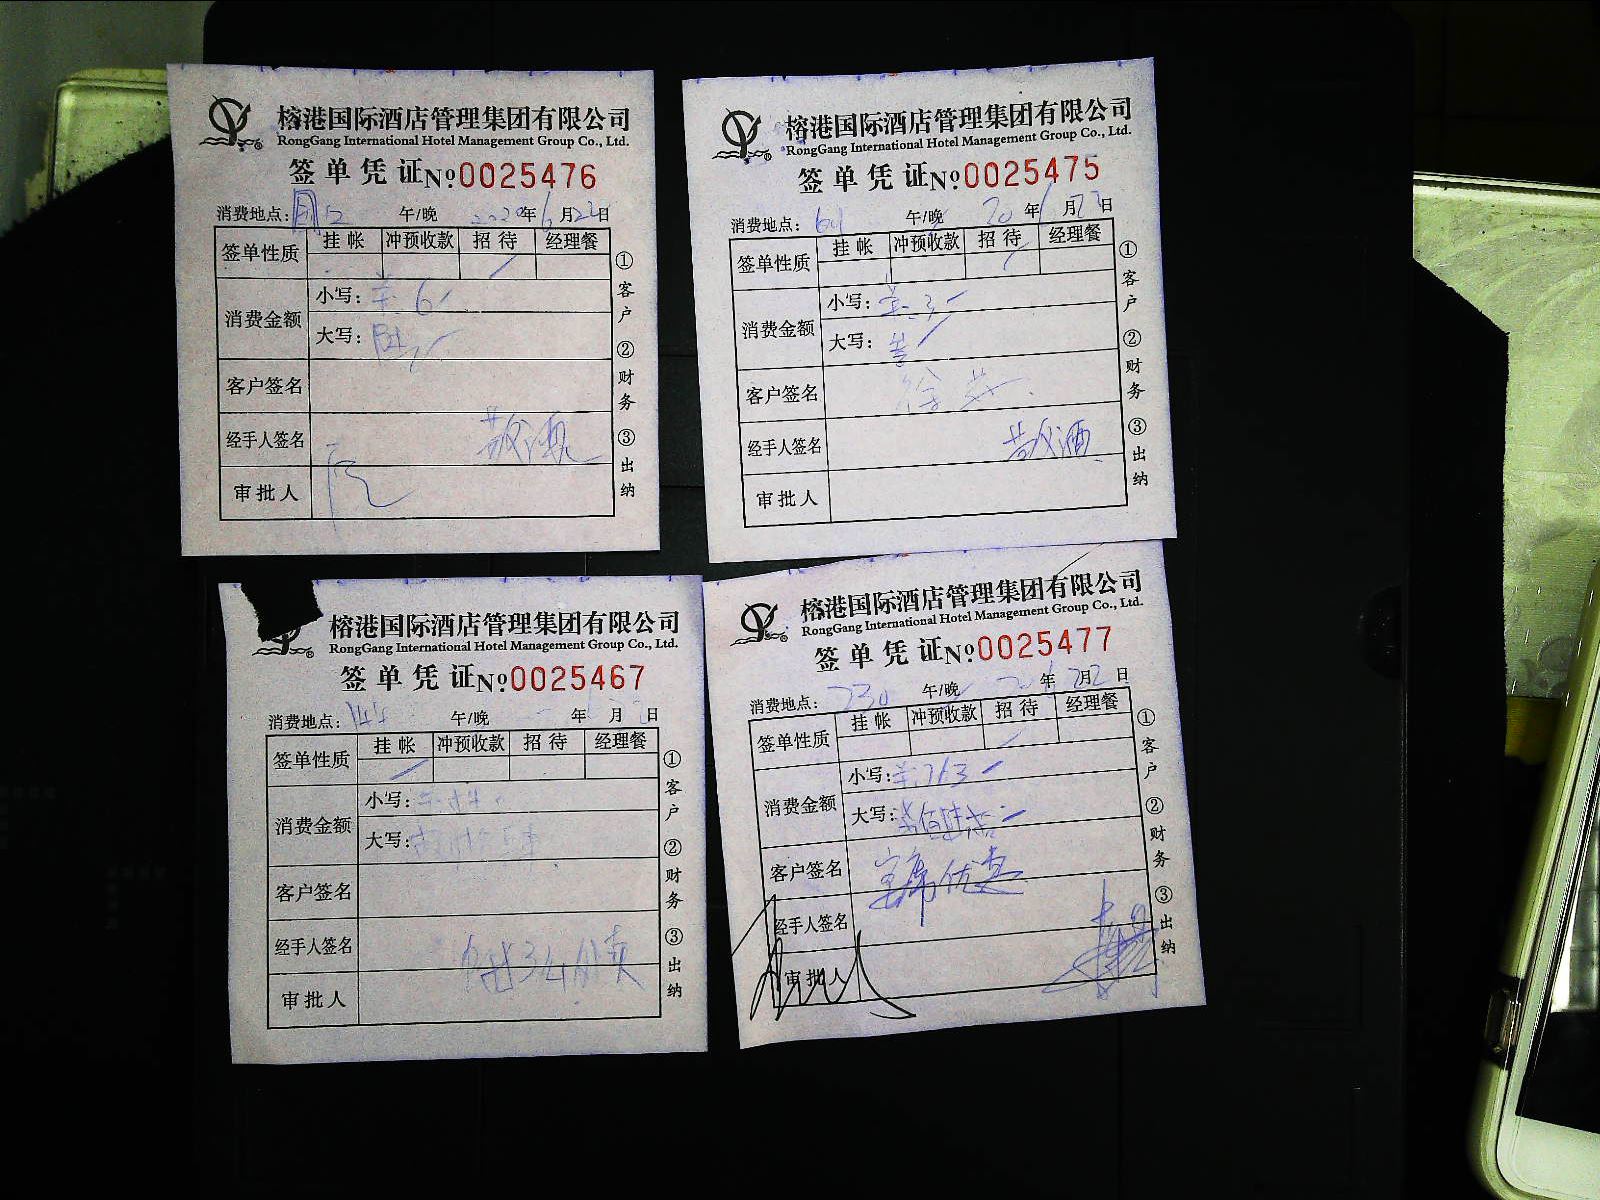 榕港国际酒店管理集团有限公司
RongGang International Hotel Management Group Co., Ltd.
签单凭证 №0025476
消费地点： 午/晚 2020年6月22日
签单性质 挂帐 冲预收款 招待 经理餐
消费金额 小写： 6
大写： 陆
客户签名
经手人签名 敬酒
审批人
①客户 ②财务 ③出纳
榕港国际酒店管理集团有限公司
RongGang International Hotel Management Group Co., Ltd.
签单凭证 №0025475
消费地点： 午/晚 20年6月22日
签单性质 挂帐 冲预收款 招待 经理餐
消费金额 小写： 3
大写：
客户签名
经手人签名 敬酒
审批人
①客户 ②财务 ③出纳
榕港国际酒店管理集团有限公司
RongGang International Hotel Management Group Co., Ltd.
签单凭证 №0025467
消费地点： 午/晚 年 月 日
签单性质 挂帐 冲预收款 招待 经理餐
消费金额 小写：
大写：
客户签名
经手人签名
审批人
①客户 ②财务 ③出纳
榕港国际酒店管理集团有限公司
RongGang International Hotel Management Group Co., Ltd.
签单凭证 №0025477
消费地点： 730 午/晚 年 月 日
签单性质 挂帐 冲预收款 招待 经理餐
消费金额 小写： 763
大写：
客户签名 宴席优惠
经手人签名
审批人
①客户 ②财务 ③出纳